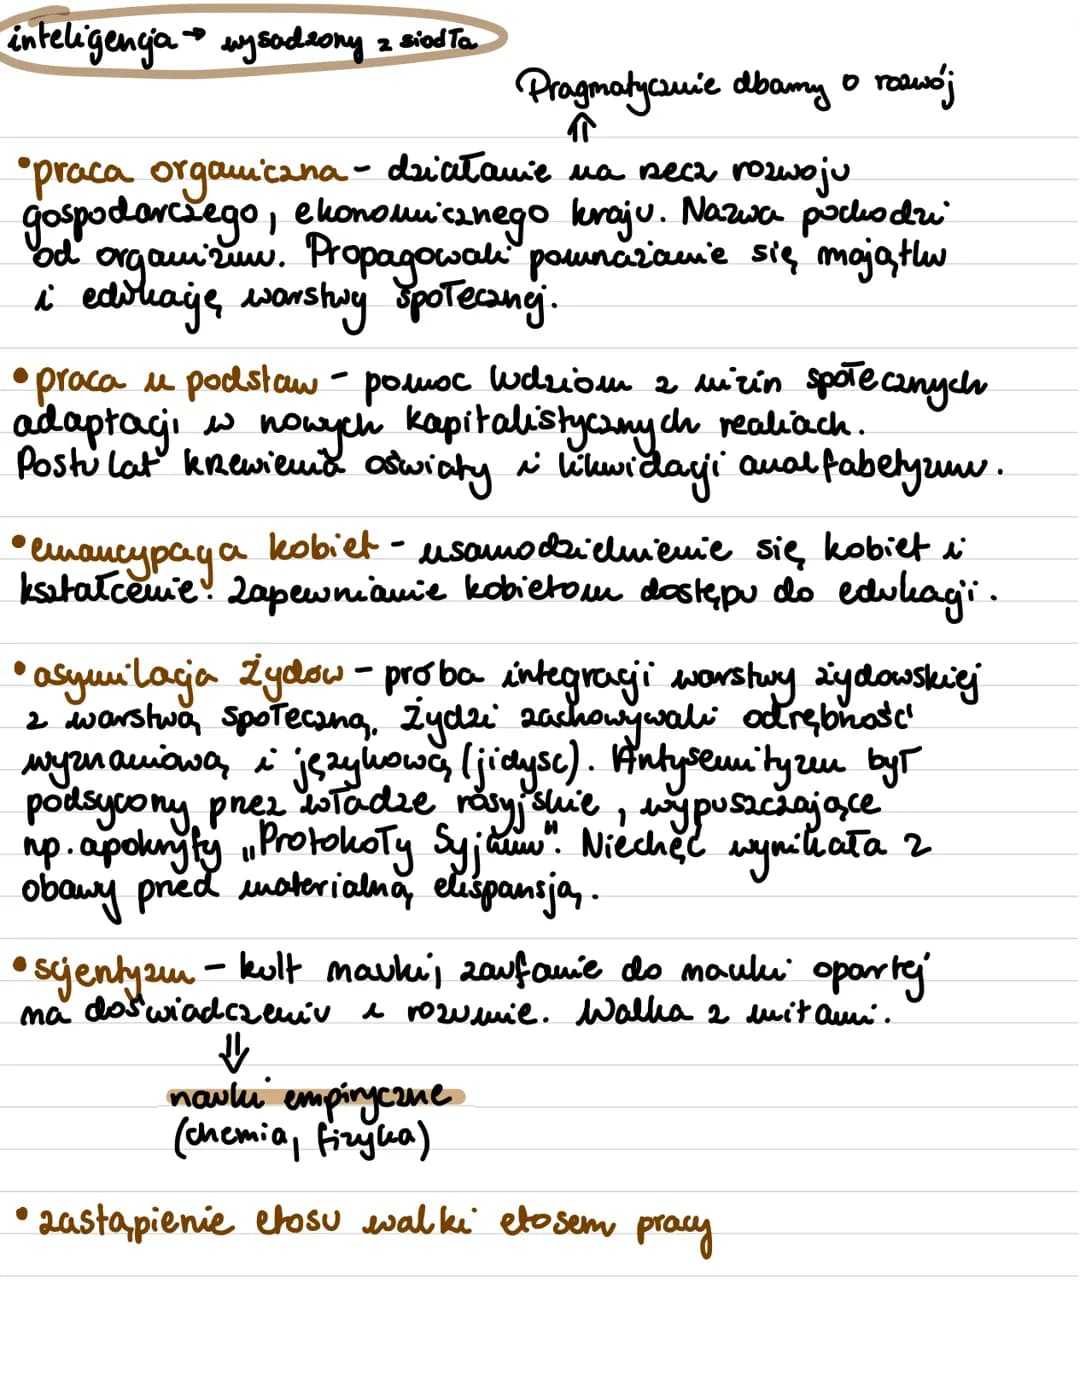 inteligencja → wysadzony z siodła
Pragmatycznie dbamy o rozwój
⇑
• praca organiczna - działanie na rzecz rozwoju
gospodarczego, ekonomicznego kraju. Nazwa pochodzi
od organizmu. Propagowali pomnażanie się majątku
i edukację warstwy społecznej.
• praca u podstaw - pomoc ludziom z nizin społecznych
adaptacji w nowych kapitalistycznych realiach.
Postulat krzewienia oświaty i likwidacji analfabetyzmu.
• emancypacja kobiet - usamodzielnienie się kobiet i
kształcenie. Zapewnianie kobietom dostępu do edukacji.
• asymilacja Żydów - próba integracji warstwy żydowskiej
z warstwą społeczną. Żydzi zachowywali odrębność
wyznaniową i językową (jidysz). Antysemityzm był
podsycony przez władze rosyjskie, wypuszczające
np. apokryfy „Protokoły Syjonu". Niechęć wynikała z
obawy przed materialną ekspansją.
• scjentyzm - kult nauki, zaufanie do nauki opartej
na doświadczeniu i rozumie. Walka z mitami.
⇓
nauki empiryczne
(chemia, fizyka)
• zastąpienie etosu walki etosem pracy